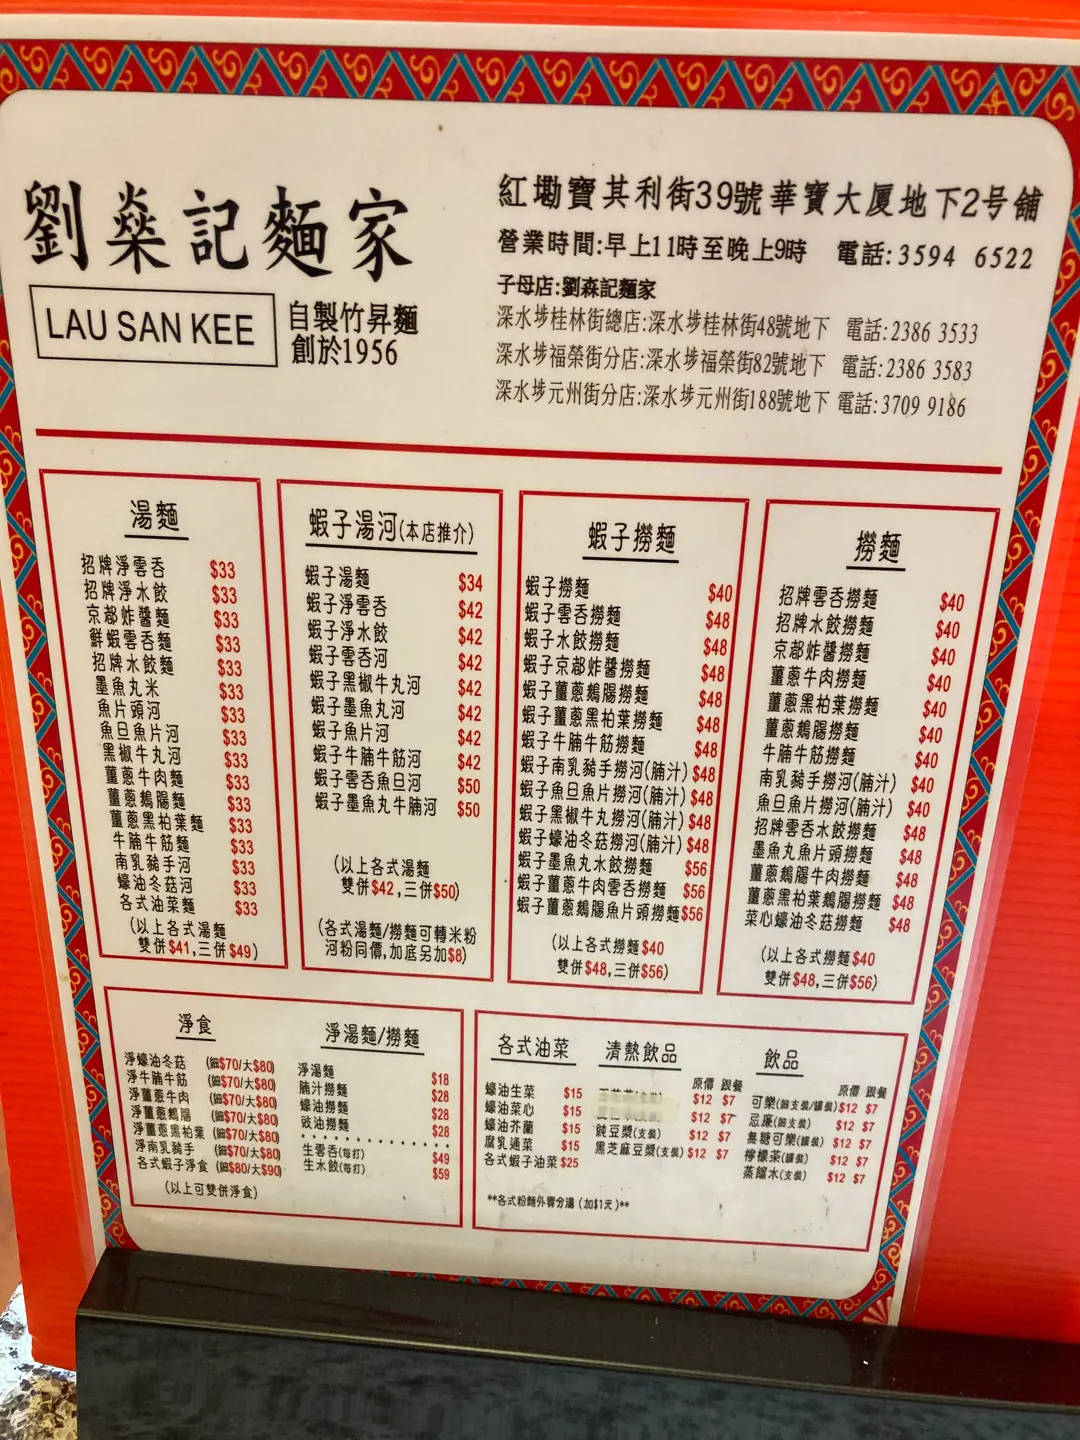 劉燊記麵家
LAU SAN KEE
自製竹昇麵
創於1956
紅墈寶其利街39號華寶大厦地下2号舖
營業時間:早上11時至晚上9時 電話:3594 6522
子母店:劉森記麵家
深水埗桂林街總店:深水埗桂林街48號地下 電話:2386 3533
深水埗福榮街分店:深水埗福榮街82號地下 電話:2386 3583
深水埗元州街分店:深水埗元州街188號地下 電話:3709 9186
湯麵
招牌淨雲吞 $33
招牌淨水餃 $33
京都炸醬麵 $33
鮮蝦雲吞麵 $33
招牌水餃麵 $33
墨魚丸米 $33
魚片頭河 $33
魚旦魚片河 $33
黑椒牛丸河 $33
薑蔥牛肉麵 $33
薑蔥鵝腸麵 $33
薑蔥黑柏葉麵 $33
牛腩牛筋麵 $33
南乳豬手河 $33
蠔油冬菇河 $33
各式油菜麵 $33
(以上各式湯麵
雙併$41,三併$49)
蝦子湯河(本店推介)
蝦子湯麵 $34
蝦子淨雲吞 $42
蝦子淨水餃 $42
蝦子雲吞河 $42
蝦子黑椒牛丸河 $42
蝦子墨魚丸河 $42
蝦子魚片河 $42
蝦子牛腩牛筋河 $42
蝦子雲吞魚旦河 $50
蝦子墨魚丸牛腩河 $50
(以上各式湯麵
雙併$42,三併$50)
(各式湯麵/撈麵可轉米粉
河粉同價,加底另加$8)
蝦子撈麵
蝦子撈麵 $40
蝦子雲吞撈麵 $48
蝦子水餃撈麵 $48
蝦子京都炸醬撈麵 $48
蝦子薑蔥鵝腸撈麵 $48
蝦子薑蔥黑柏葉撈麵 $48
蝦子牛腩牛筋撈麵 $48
蝦子南乳豬手撈河(腩汁) $48
蝦子魚旦魚片撈河(腩汁) $48
蝦子黑椒牛丸撈河(腩汁) $48
蝦子蠔油冬菇撈河(腩汁) $48
蝦子墨魚丸水餃撈麵 $56
蝦子薑蔥牛肉雲吞撈麵 $56
蝦子薑蔥鵝腸魚片頭撈麵 $56
(以上各式撈麵$40
雙併$48,三併$56)
撈麵
招牌雲吞撈麵 $40
招牌水餃撈麵 $40
京都炸醬撈麵 $40
薑蔥牛肉撈麵 $40
薑蔥黑柏葉撈麵 $40
薑蔥鵝腸撈麵 $40
牛腩牛筋撈麵 $40
南乳豬手撈河(腩汁) $40
魚旦魚片撈河(腩汁) $40
招牌雲吞水餃撈麵 $48
墨魚丸魚片頭撈麵 $48
薑蔥鵝腸牛肉撈麵 $48
薑蔥黑柏葉鵝腸撈麵 $48
菜心蠔油冬菇撈麵 $48
(以上各式撈麵$40
雙併$48,三併$56)
淨食
淨蠔油冬菇 (細$70/大$80)
淨牛腩牛筋 (細$70/大$80)
淨薑蔥牛肉 (細$70/大$80)
淨薑蔥鵝腸 (細$70/大$80)
淨薑蔥黑柏葉 (細$70/大$80)
淨南乳豬手 (細$70/大$80)
各式蝦子淨食 (細$80/大$90)
(以上可雙併淨食)
淨湯麵/撈麵
淨湯麵 $18
腩汁撈麵 $28
蠔油撈麵 $28
豉油撈麵 $28
生雲吞(每打) $49
生水餃(每打) $59
各式油菜
蠔油生菜 $15
蠔油菜心 $15
蠔油芥蘭 $15
腐乳通菜 $15
各式蝦子油菜 $25
清熱飲品
原價 跟餐
$12 $7
$12 $7
純豆漿(支裝) $12 $7
黑芝麻豆漿(支裝) $12 $7
飲品
原價 跟餐
可樂(細支裝/罐裝) $12 $7
忌廉(細支裝) $12 $7
無糖可樂(罐裝) $12 $7
檸檬茶(罐裝) $12 $7
蒸餾水(支裝) $12 $7
**各式粉麵外賣分湯(加$1元)**